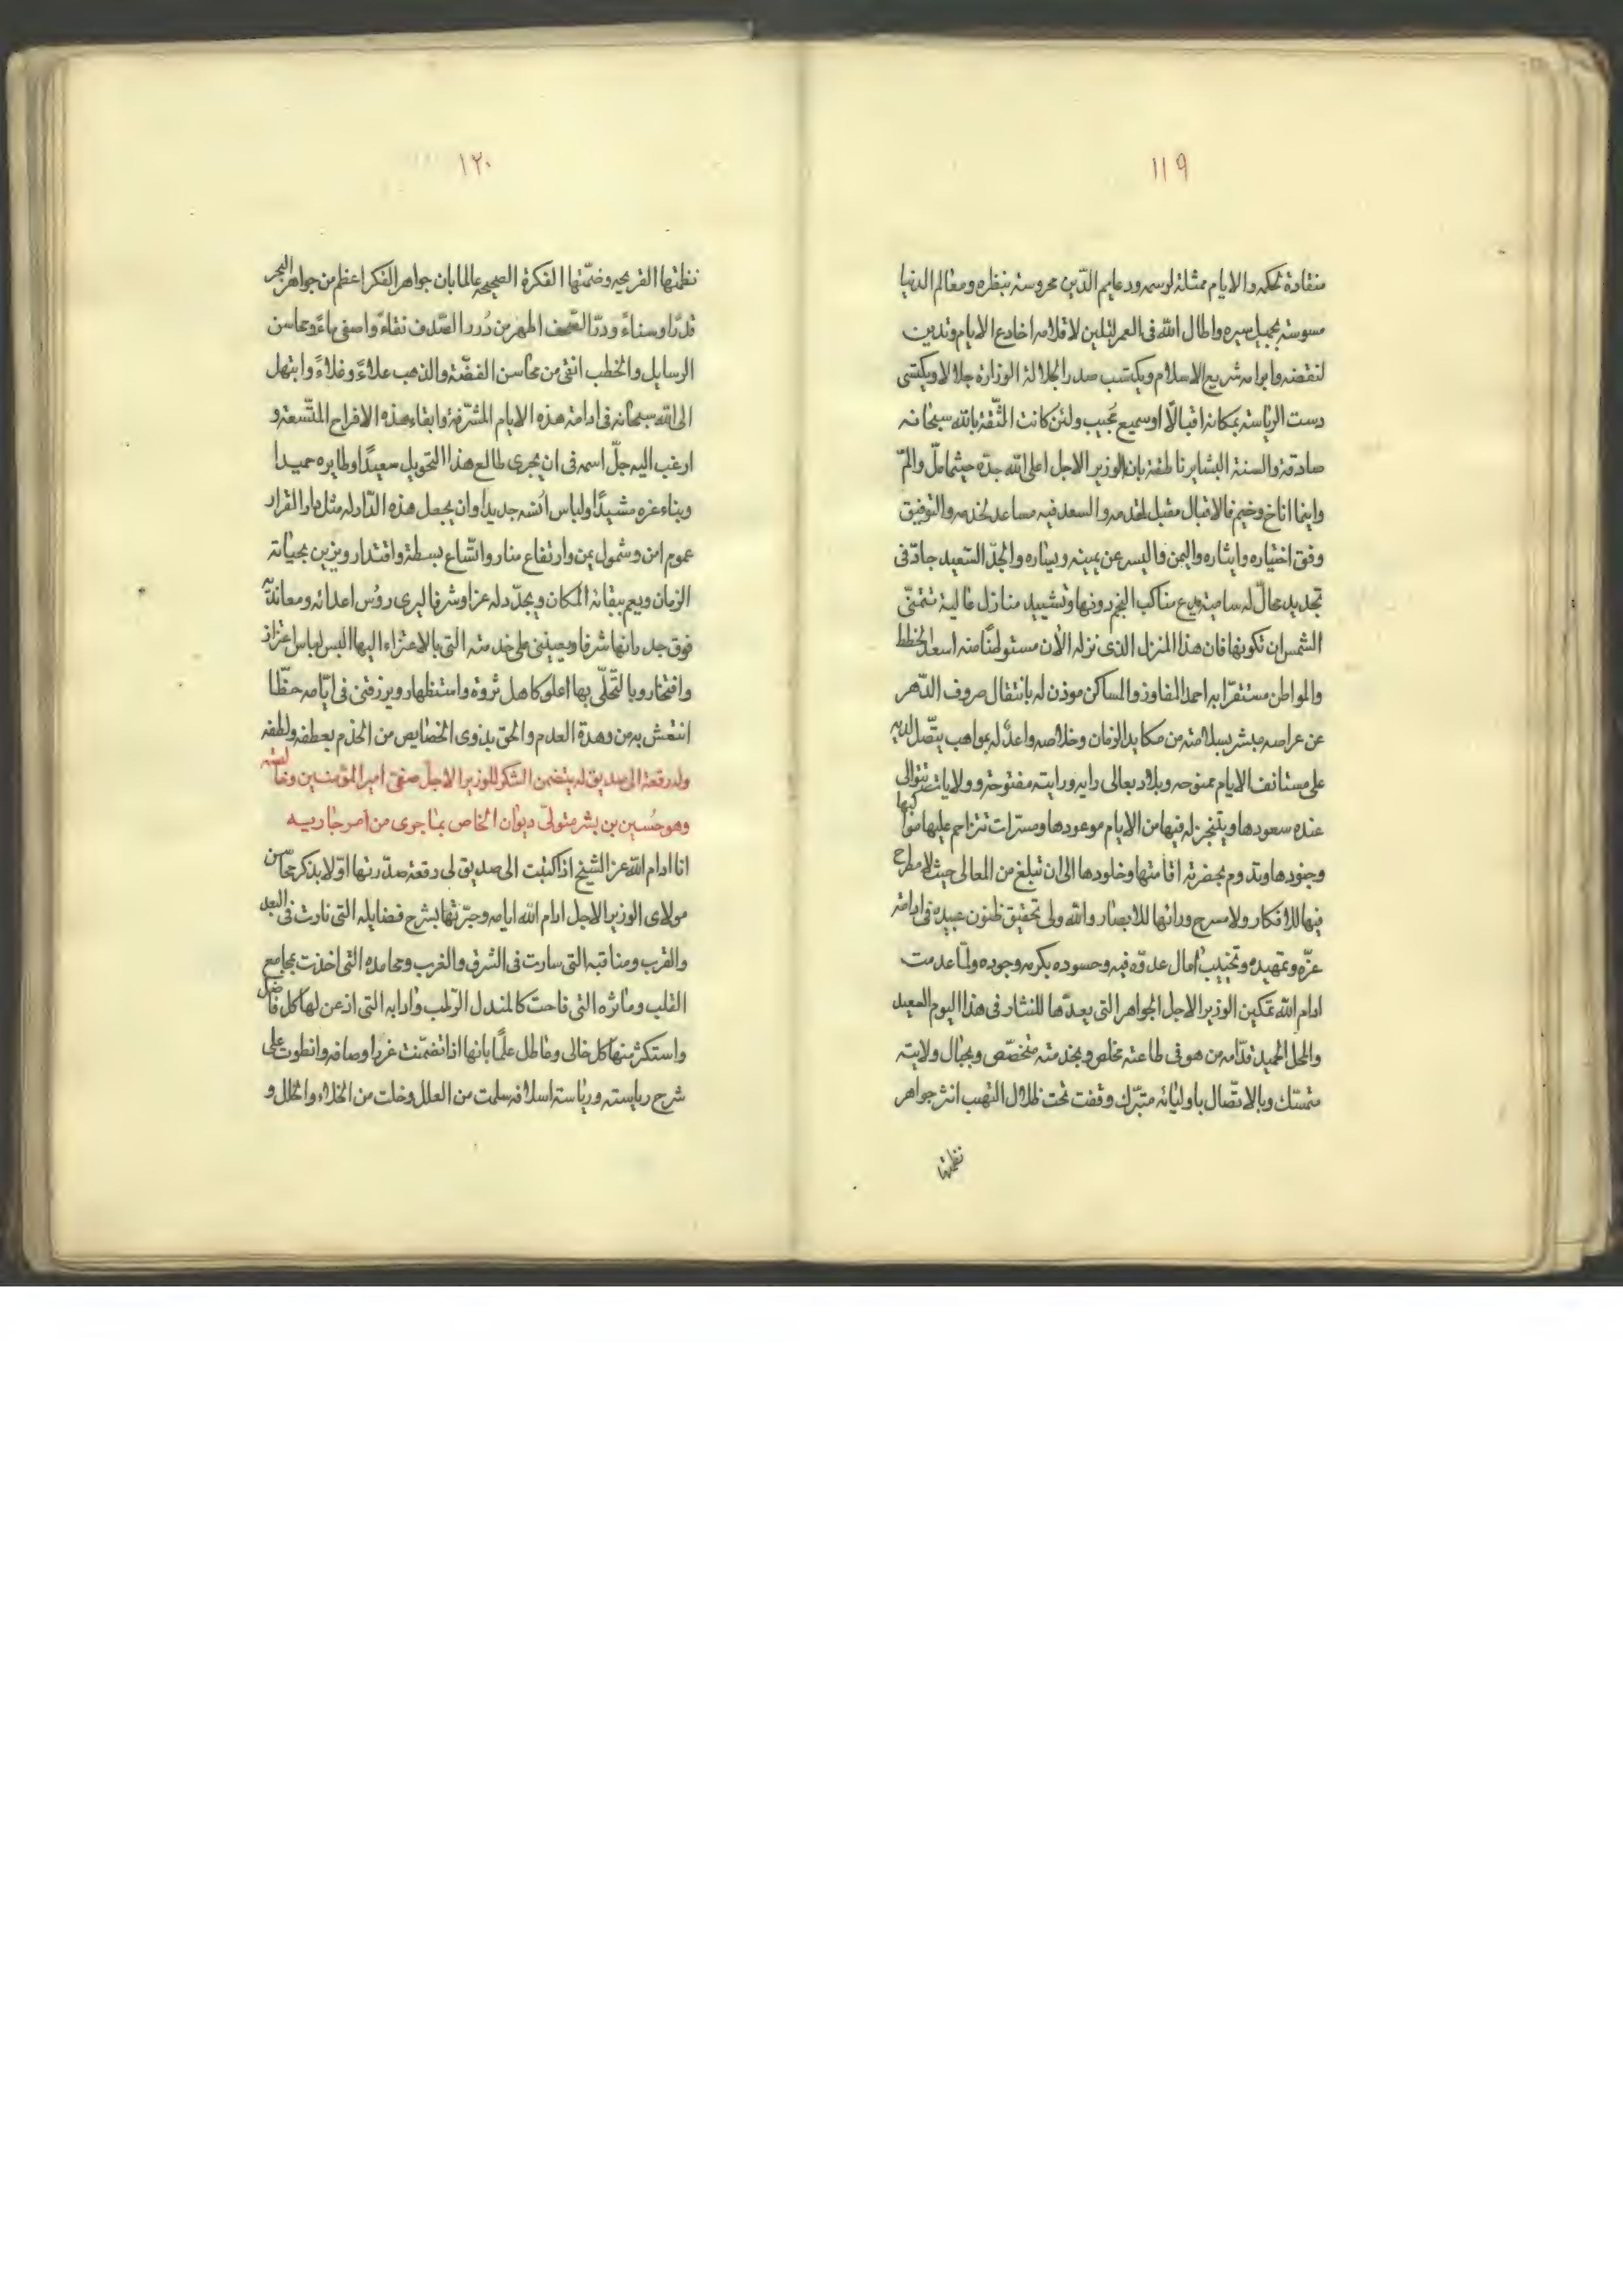 ١١٩
منقادة لحكمه والايام ممتثلة لرسمه ودعايم الدّين محروسة بنظره ومعالم الدنيا
مسوسة بجميل سيره واطال الله فى العمر لتلين لاقلامه اخادع الايام وتدين
لنقضه وابرامه شريع الاسلام ويكتسب صدر الجلالة الوزارة جلالا ويكتسى
دست الرياسة بمكانه اقبالًا اوسميع مجيب ولئن كانت الثّقة بالله سبحانه
صادقة والسنة البشاير ناطقة بان الوزير الاجل اعلى الله جدّه حيثما حلّ والمّ
واينما اناخ وخيم فالاقبال مقبل لقدمه والسعد فيه مساعد لخدمه والتوفيق
وفق اختياره وايثاره واليمن واليسر عن يمينه ويساره والجدّ السّعيد جادّ فى
تجديد حالّ له سامية يدع مناكب النجم دونها وتشييد منازل عالية تتمنّى
الشمس ان تكونها فان هذا المنزل الذى نزله الآن مستوطنًا منه اسعد الخطط
والمواطن مستقرّا به احمد المفاوز والمساكن موذن له بانتقال صروف الدّهر
عن عراصه مبشر بسلامته من مكايد الزمان وخلاصه واعدٌ له بمواهب يتّصل لديه
على مستانف الايام ممنوحه وبلاد بعالى رايه ورايته مفتوحة وولايات تتوالى
عنده سعودها ويتنجز له فيها من الايام موعودها ومسرّات تتزاحم عليها مواكبها
وجنودها وتدوم بحضرته اقامتها وخلودها الى ان تبلغ من المعالى حيث لا مطرح
فيها للافكار ولا مسرح ورائها للابصار والله ولى تحقيق ظنون عبيده فى ادامة
عزّه وتمهيده وتخييب آمال عدوّه فيه وحسوده بكرمه وجوده ولمّا عدمت
ادام الله تمكين الوزير الاجل الجواهر التى يعدّها للنثار فى هذا اليوم السعيد
والمحل الحميد قدّامه من هو فى طاعته مخلص وبخدمته متخصّص وبحبال ولايته
متمسّك وبالاتصّال باوليائه متبّرك وقفت تحت ظلال التهيب انثر جواهر
نظمتها
١٢٠
نظمتها القريحه وضمّتها الفكرة الصحيحه عالما بان جواهر الفكر اعظم من جواهر البحر
قدرًا وسناءً ودرّ الصّحف اطهر من دُرر الصّدف نقاءً واصفى ماءً ومحاسن
الرسايل والخطب انقى من محاسن الفضّة والذهب علاءً وغلاءً وابتهل
الى الله سبحانه فى ادامة هذه الايام المشرّفة وابقاء هذه الافراح المتّسعة و
ارغب اليه جلّ اسمه فى ان يجرى طالع هذا التحويل سعيدًا وطايره حميدا
وبناء عزه مشيدًا ولباس اُنسه جديدا وان يجعل هذه الدّار له مثل دار القرار
عموم امن وشمول يمن وارتفاع منار واتّساع بسطة واقتدار ويزين بحياته
الزمان ويعم ببقائه المكان ويجدّد له عزا وشرفا ليرى روُس اعدائه ومعانديه
فوق جدرانها شرفا ويعيننى على خدمته التى بالاعتزاء اليها البس لباس اعتزاز
وافتخار وبالتّحلّى بها اعلو كاهل ثروة واستظهار ويرزقنى فى ايّامه حظّا
انتعش به من وهدة العدم والحق بذوى الخصايص من الخدم بعطفه ولطفه
وله رقعة الى صديق له يتضمن الشكر للوزير الاجلّ صفىّ امير المؤمنين وخالصته
وهو حُسين بن بشر متولّى ديوان الخاص بما جرى من امر جاريه
انا ادام الله عز الشيخ اذا كتبت الى صديق لى رقعة صدّرتها اوّلا بذكر محاسن
مولاى الوزير الاجل ادام الله ايامه وحبّرتها بشرح فضايله التى نارت فى البعد
والقرب ومناقبه التى سارت فى الشرق والغرب ومحامده التى اخذت بمجامع
القلب ومآثره التى فاحت كالمندل الرّطب وادابه التى اذعن لها كل فاضل
واستكثر منها كل خالى وعاطل علمًا بانها اذا تضمّنت غرر اوصافه وانطوت على
شرح رياسته ورياسة اسلافه سلمت من العلل وخلت من الخلاء والخلل و